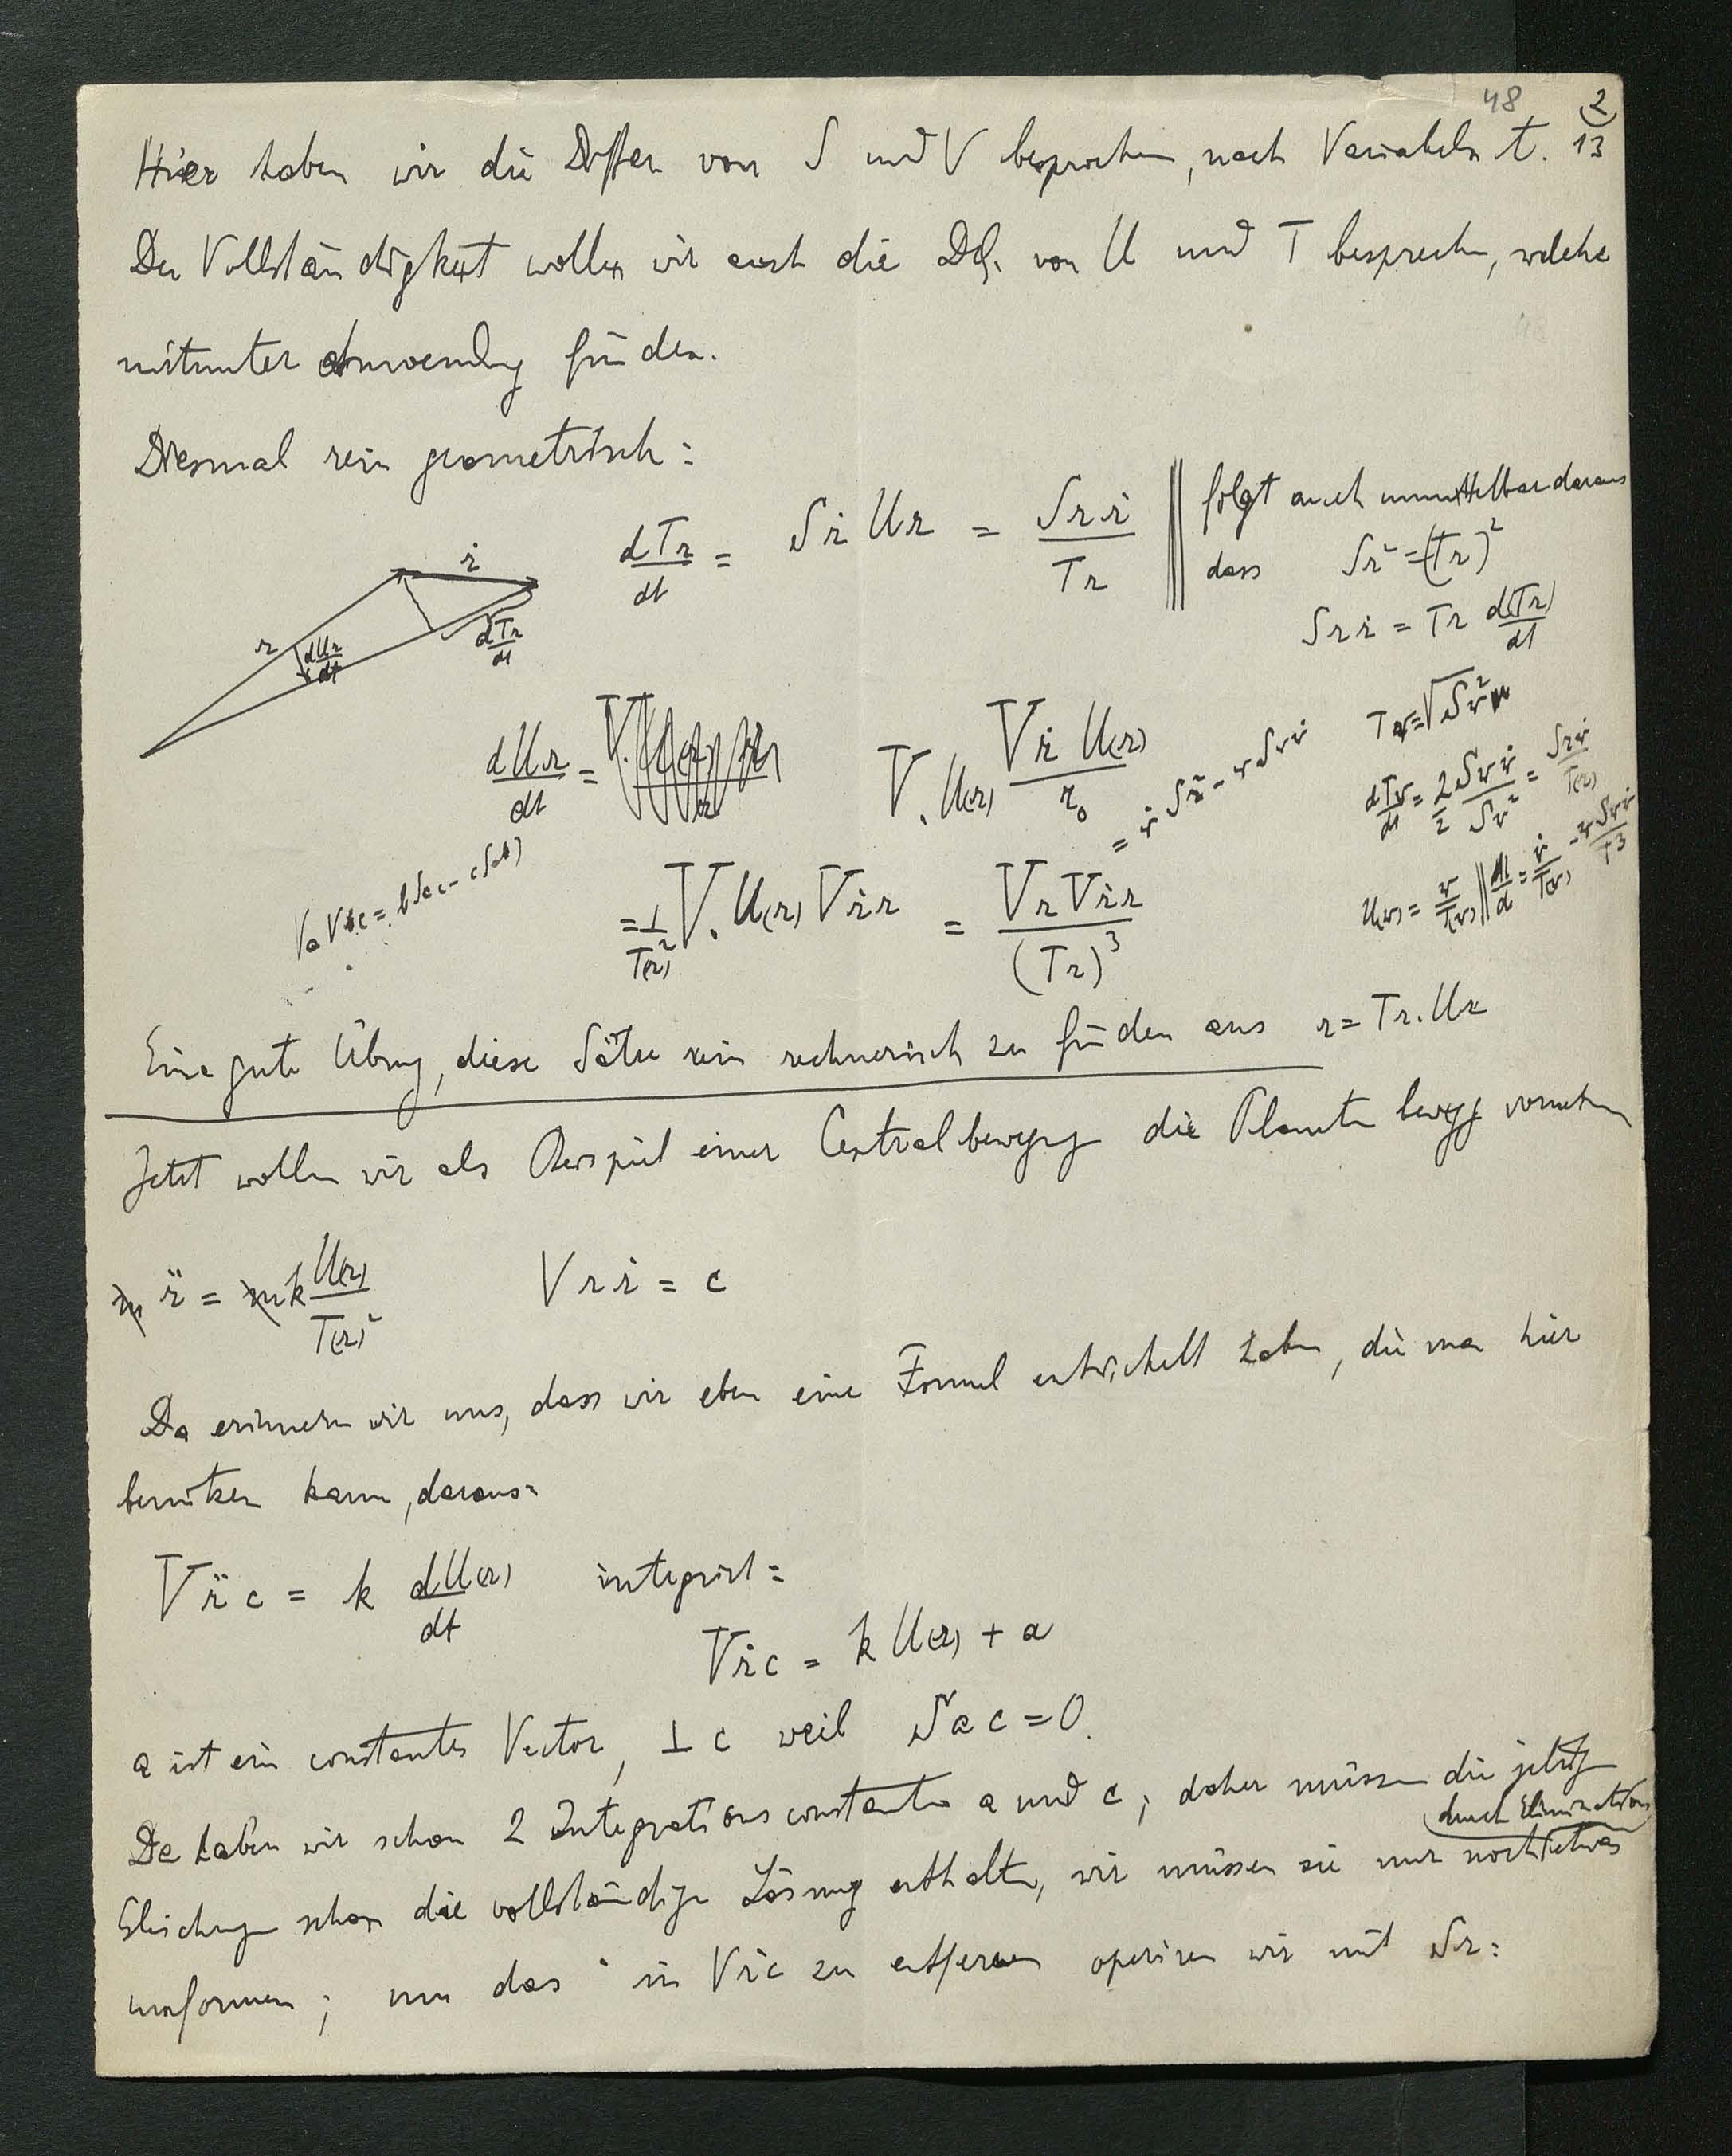 48 2
13
Hier haben wir die Differ von S und V besprochen, nach Variabeln t.
Der Vollständigkeit wollen wir auch die DQ. von U und T besprechen, welche
mitunter Anwendg finden.
Diesmal rein geometrisch:
dTr/dt = Sṙ Ur = Srṙ/Tr || folgt auch unmittelbar daraus
dass Sr² = (Tr)²
Srṙ = Tr d(Tr)/dt
ṙ
r
dUr/dt
dTr/dt
dUr/dt = V. U(r) Vṙ U(r)/r₀ = ṙ Sr² - r Srṙ
Tr = √Sr²
dTr/dt = 2/2 Srṙ/Sr² = Srṙ/T(r)
VaVbc = bSac - cSab
= 1/T(r)² V. U(r) Vṙr = VrVṙr/(Tr)³
U(r) = r/T(r) || dU/d = ṙ/T(r) - rSrṙ/T3
Eine gute Übung, diese Sätze rein rechnerisch zu finden aus r = Tr.Ur
Jetzt wollen wir als Beispiel einer Centralbewegung die Planetenbewegg vornehmen
m r̈ = mk U(r)/T(r)² Vrṙ = c
Da erinnern wir uns, dass wir eben eine Formel entwickelt haben, die man hier
benützen kann, daraus:
Vr̈c = k dU(r)/dt integrirt:
Vṙc = kU(r) + a
a ist ein constanter Vector, ⊥ c weil Sac = 0.
Da haben wir schon 2 Integrationsconstanten a und c; daher müssen die jetzige
durch Elimination
Gleichungen schon die vollständige Lösung enthalten, wir müssen sie nur noch etwas
umformen; um das ˙ in Vṙc zu entfernen operiren wir mit Sr: